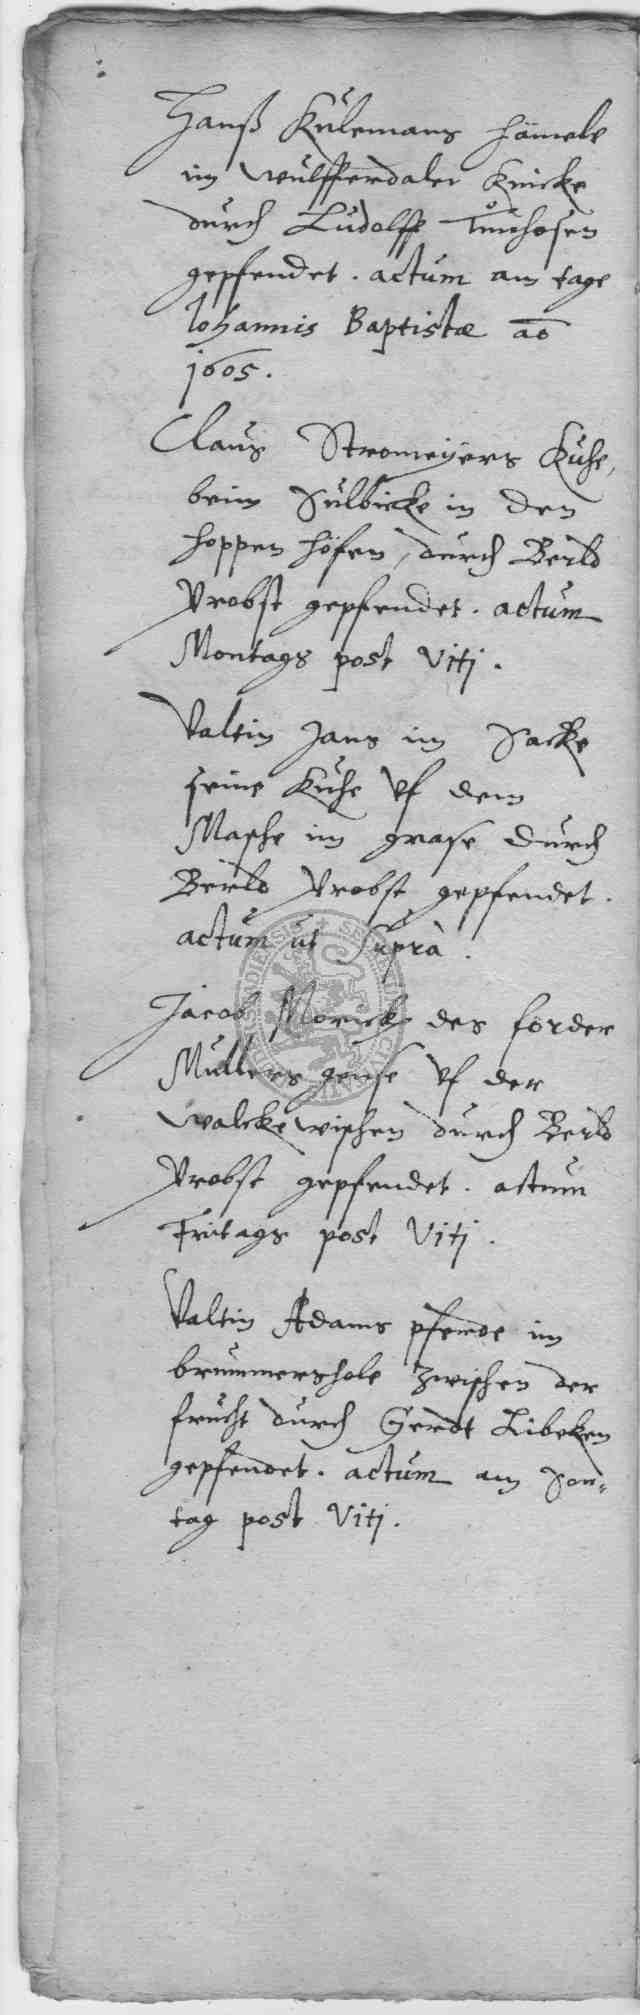 Hanß Külemans hämele
im wulfferdaler Knicke
durch Ludolff Tuchosen
gepfendet. actum am tage
Johannis Baptistæ ao
1605.
Claus Stromeÿers Kuhe,
beim Sülbicke in den
hoppen höfen, durch Berld
Probst gepfendet. actum
Montags post Viti.
Valtin Jans im Sacke
seine Kuhe vf dem
Masche im grase durch
Berld Probst gepfendet.
actum ut suprà.
Jacob des forder
Müllers gense vf der
walckewischen durch Berld
Probst gepfendet. actum
Fritags post Viti.
Valtin Adams pferde im
brummershole zwischen der
frucht durch Gerdt Lübeken
gepfendet. actum am Son-
tag post Viti.